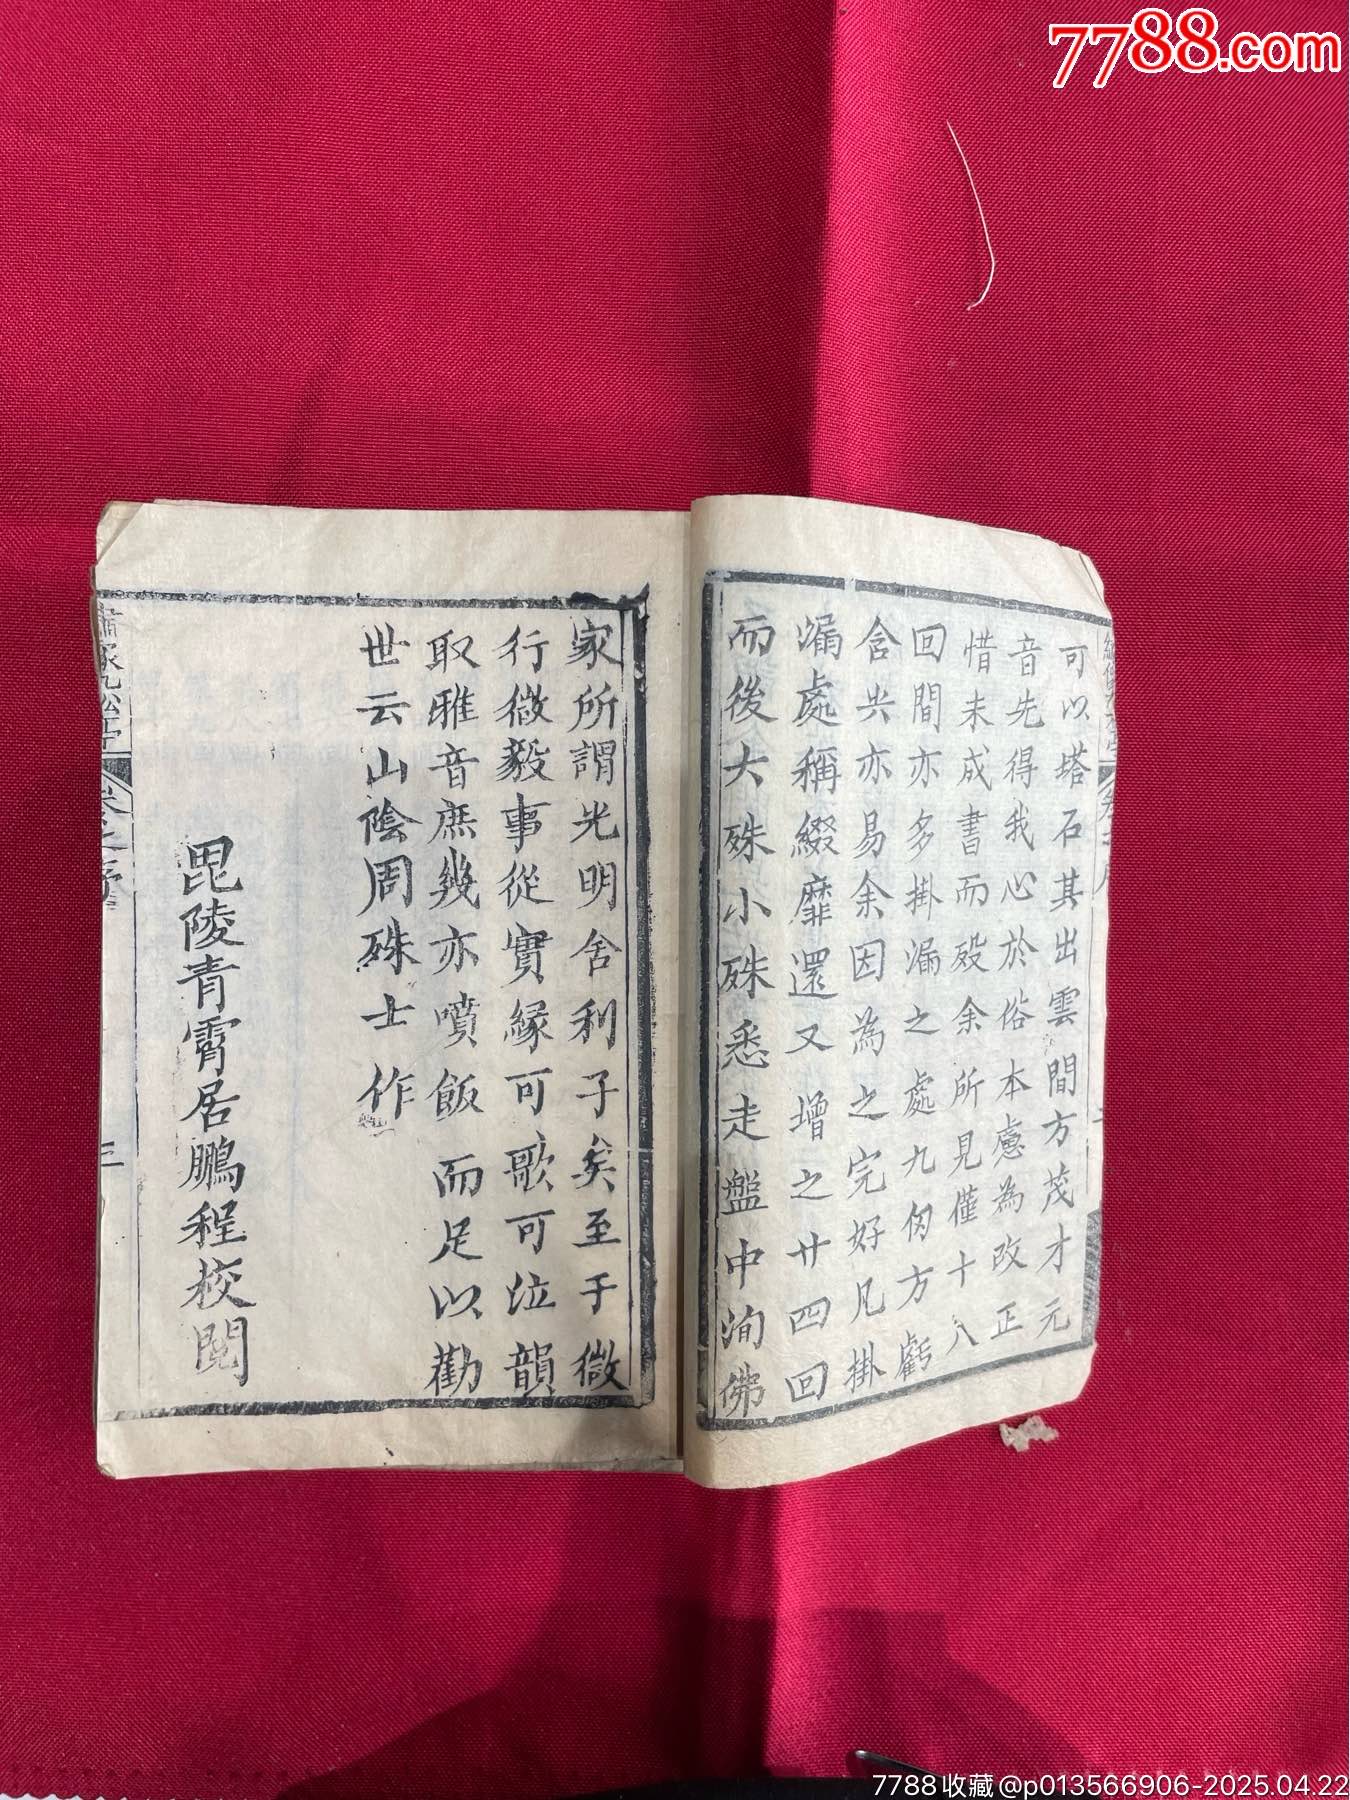 7788.com
可以塔石其出雲間方茂才元
音先得我心於俗本慮為改正
惜未成書而歿余所見僅十八
回間亦多掛漏之處九匃方虧
含共亦易余因為之完好凡掛
漏處稱綴靡還又增之廿四回
而後大珠小珠悉走盤中洵佛
家所謂光明舍利子矣至于微
行微毅事從實緣可歌可泣韻
取雅音庶幾亦噴飯而足以勸
世云山陰周珠士作
毘陵青霄居鵬程校閱
三
7788收藏@p013566906-2025.04.22